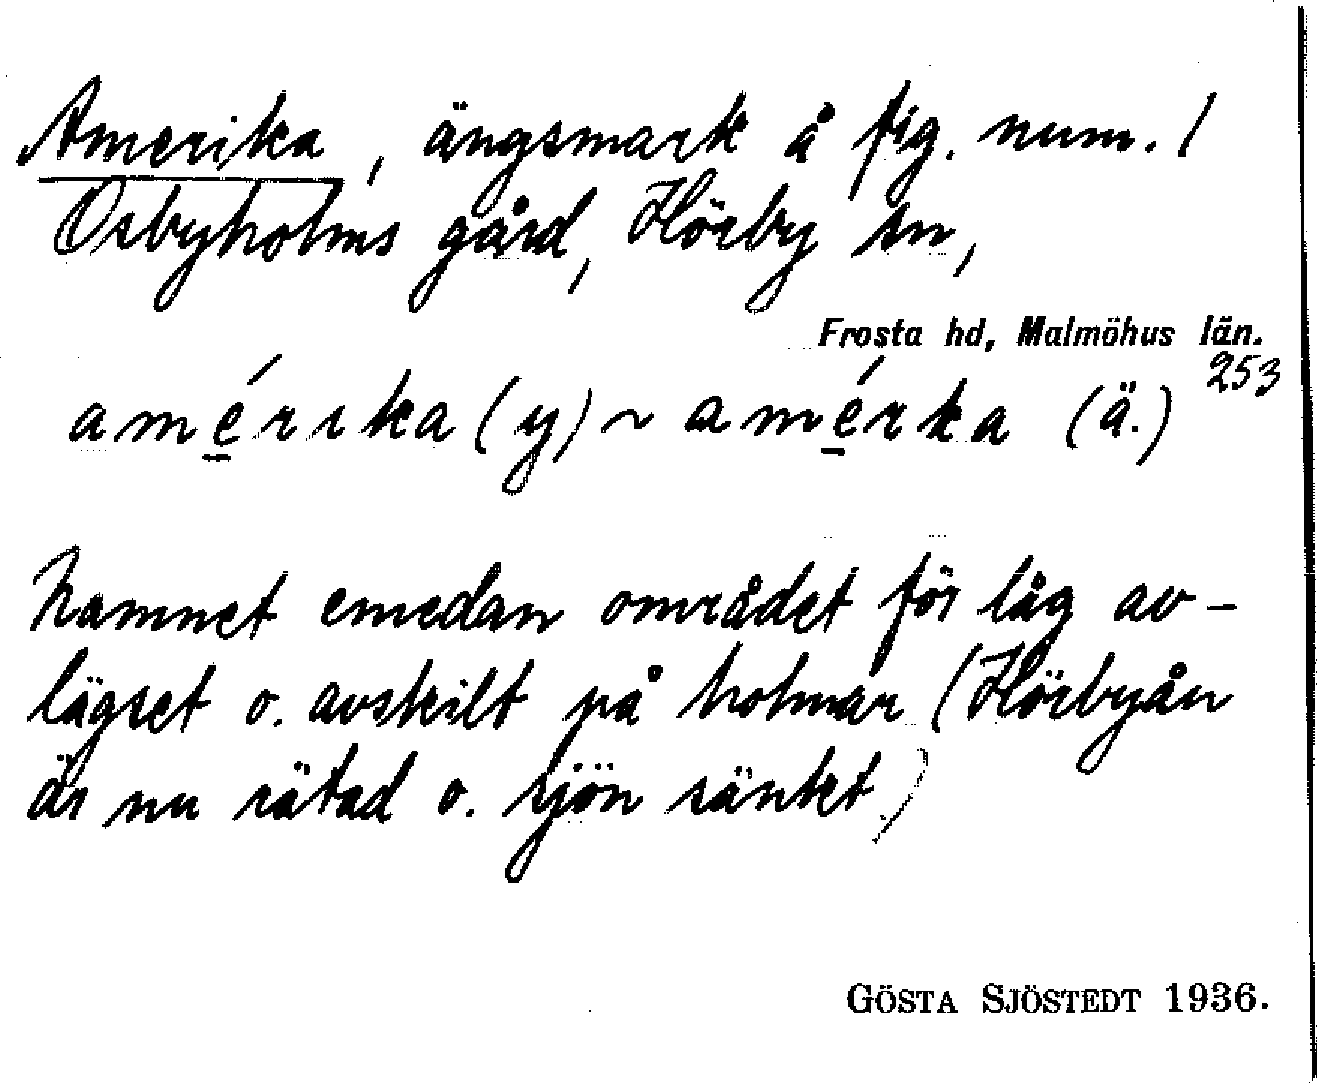 Amerika, ängsmark å fig. num. 1
Osbyholms gård, Hörby sn,
Frosta hd, Malmöhus län.
253
amérika (y) ~ amérka (ä.)
Namnet emedan området för låg av-
lägset o. avskilt på holmar (Hörbyån
är nu rätad o. sjön sänket)
GÖSTA SJÖSTEDT 1936.